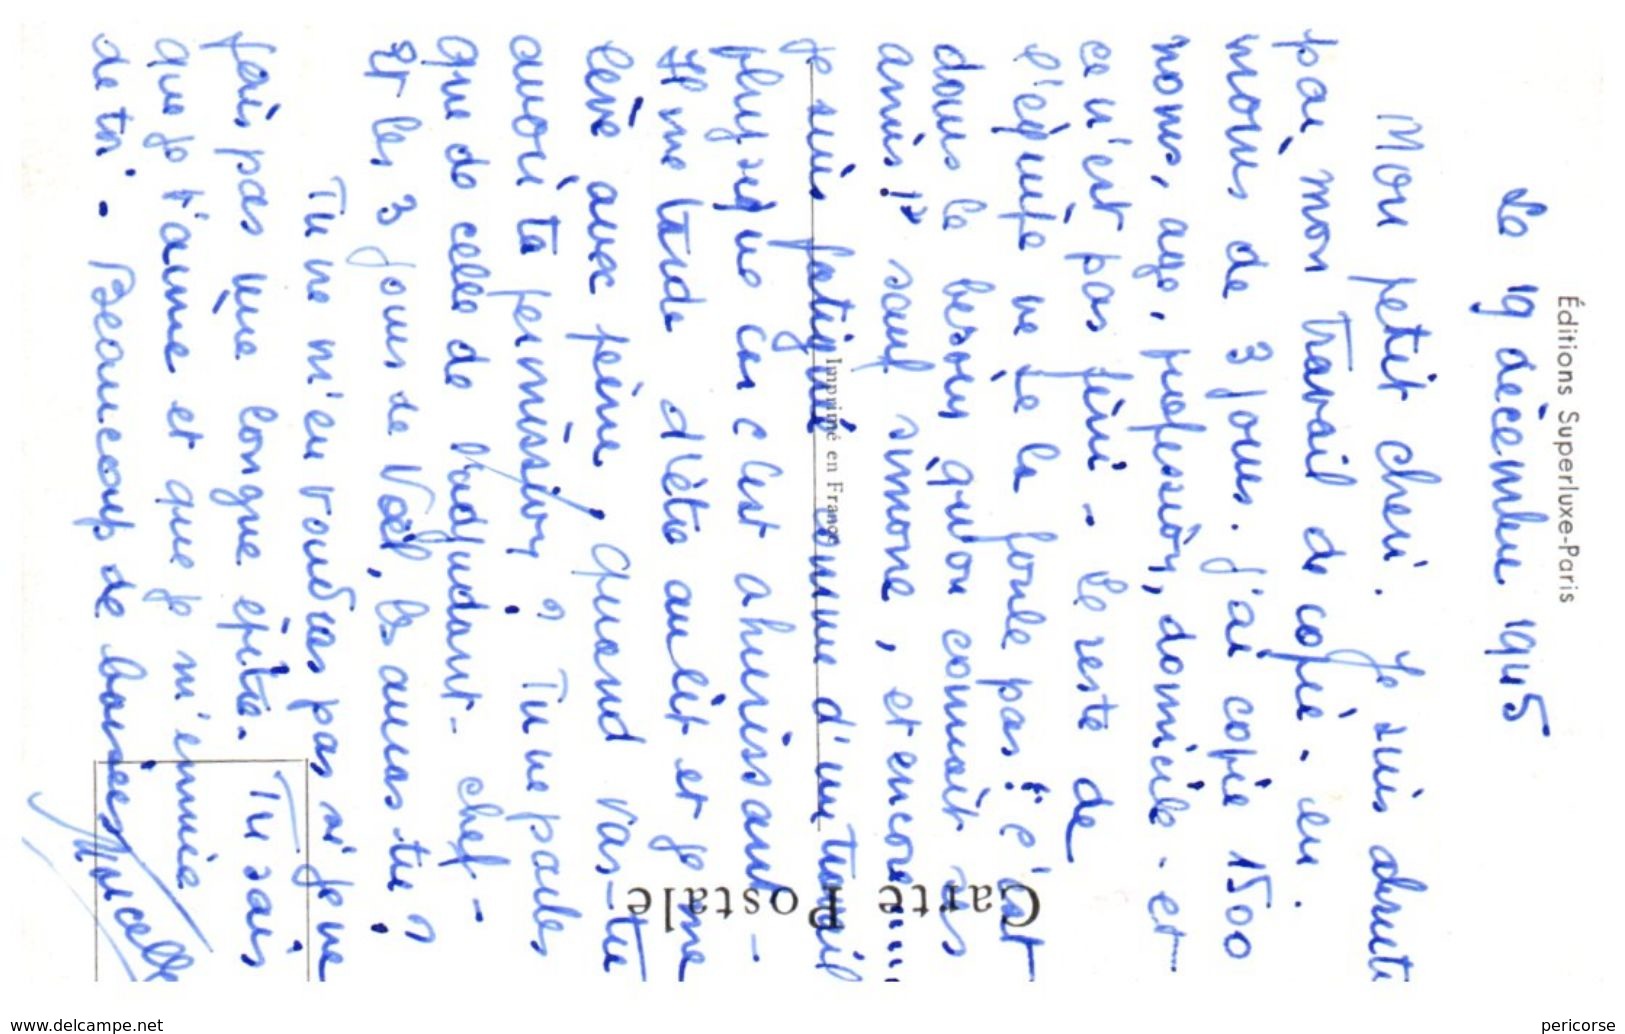 Éditions Superluxe-Paris
Le 19 décembre 1945
Mon petit cheri. Je suis abruti
par mon travail de copie. en
moins de 3 jours. j'ai copié 1500
noms, age, profession, domicile. et
ce n'est pas fini - le reste de
l'équipe ne se la foule pas ! c'est
dans le besoin qu'on connait ses
amis !" sauf simone, et encore.....
je suis fatiguée comme d'un travail
physique car c'est ahurissant -
Il me tarde d'être au lit et je me
lève avec peine. Quand vas-tu
avoir ta permission ? Tu ne parles
que de celle de l'adjudant-chef -
Et les 3 jours de Noël, les auras tu ?
Tu ne m'en voudras pas si je ne
fais pas une longue epitre. Tu sais
que je t'aime et que je m'ennuie
de toi. Beaucoup de baisers
Marcelle
Imprimé en France
Carte Postale
www.delcampe.net
pericorse